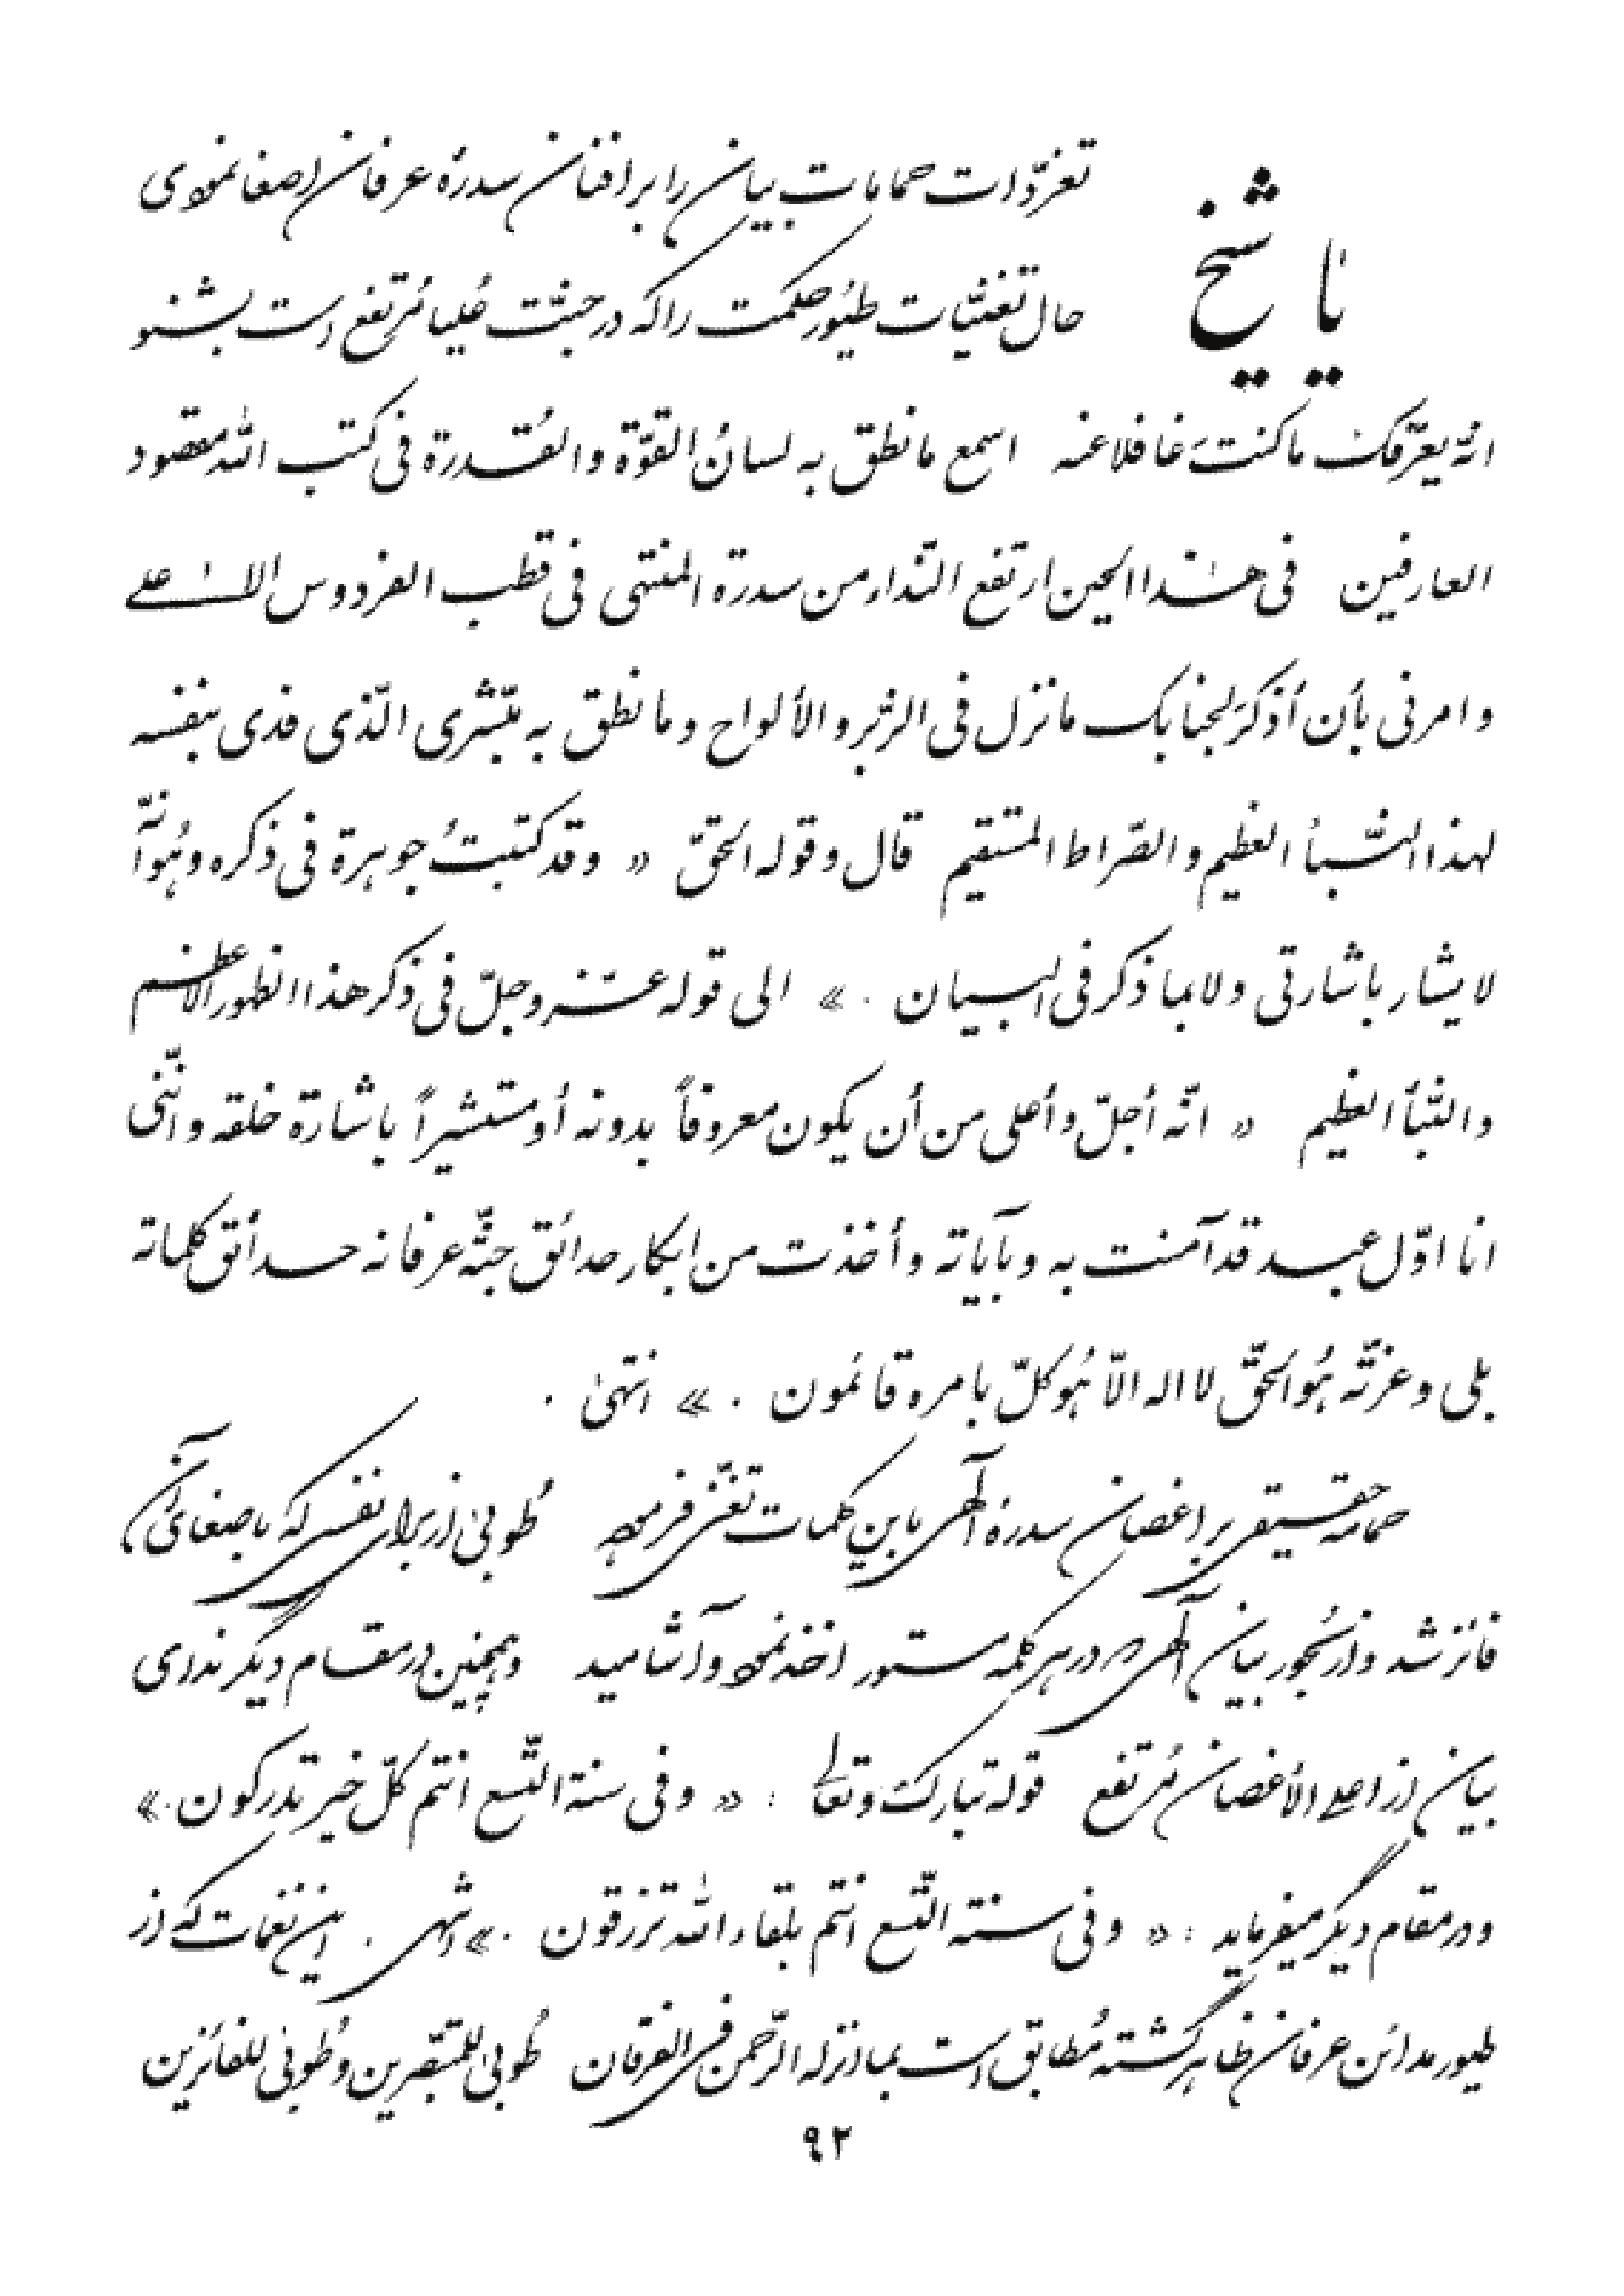 یا شیخ
تغرّدات حمامات بیان را بر افنان سدرهٔ عرفان اصغا نمودی
حال تغنّیات طیُور حکمت را که در جنّت عُلیا مُرتفع است بشنو
انّه یعرّفک ما کنتَ غافلا عنه اسمع ما نطق به لسانُ القوّة والقُدرة فی کتب اللّه مقصود
العارفین فی هٰذا الحین ارتفع النّداء من سدرة المنتهی فی قطب الفردوس الاعلی
وامرنی بأن أذکرَ لجنابک ما نزل فی الزّبر والألواح وما نطق به مبشّری الّذی فدی بنفسه
لهذا النّبأ العظیم والصّراط المستقیم قال وقوله الحقّ « وقد کتبتُ جوهرة فی ذکره وهُو انّه
لا یشار باشارتی ولا بما ذکر فی البیان . » الی قوله عزّ وجلّ فی ذکر هذا الظهور الأعظم
والنّبأ العظیم « انّه أجلّ وأعلی من أن یکون معروفاً بدونه أو مستشیراً باشارة خلقه وانّنی
انا اوّل عبد قد آمنت به وبآیاته وأخذت من ابکار حدائق جنّة عرفانه حدائق کلماته
بلی وعزّته هُو الحقّ لا اله الّا هُو کلّ بامره قائمون . » انتهیٰ .
حمامهٔ حقیقی بر اغصان سدرهٔ الٓهی باین کلمات تغنّی فرموده طُوبیٰ از برای نفسی که باصغای آن
فائز شد و از بُحور بیان الٓهی که در هر کلمه مستور اخذ نمود و آشامید و همچنین در مقام دیگر ندای
بیان از اعلی الأغصان مُرتفع قوله تبارک وتعالی : « وفی سنة التّسع انتم کلّ خیر تدرکون . »
و در مقام دیگر میفرماید : « وفی سنة التّسع انتم بلقاء اللّه ترزقون . » انتهی . این نغمات که از
طیور مدائن عرفان ظاهر گشته مُطابق است بما انزله الرّحمن فی الفرقان طُوبیٰ للمتبصّرین وطُوبیٰ للفائزین
۹۲